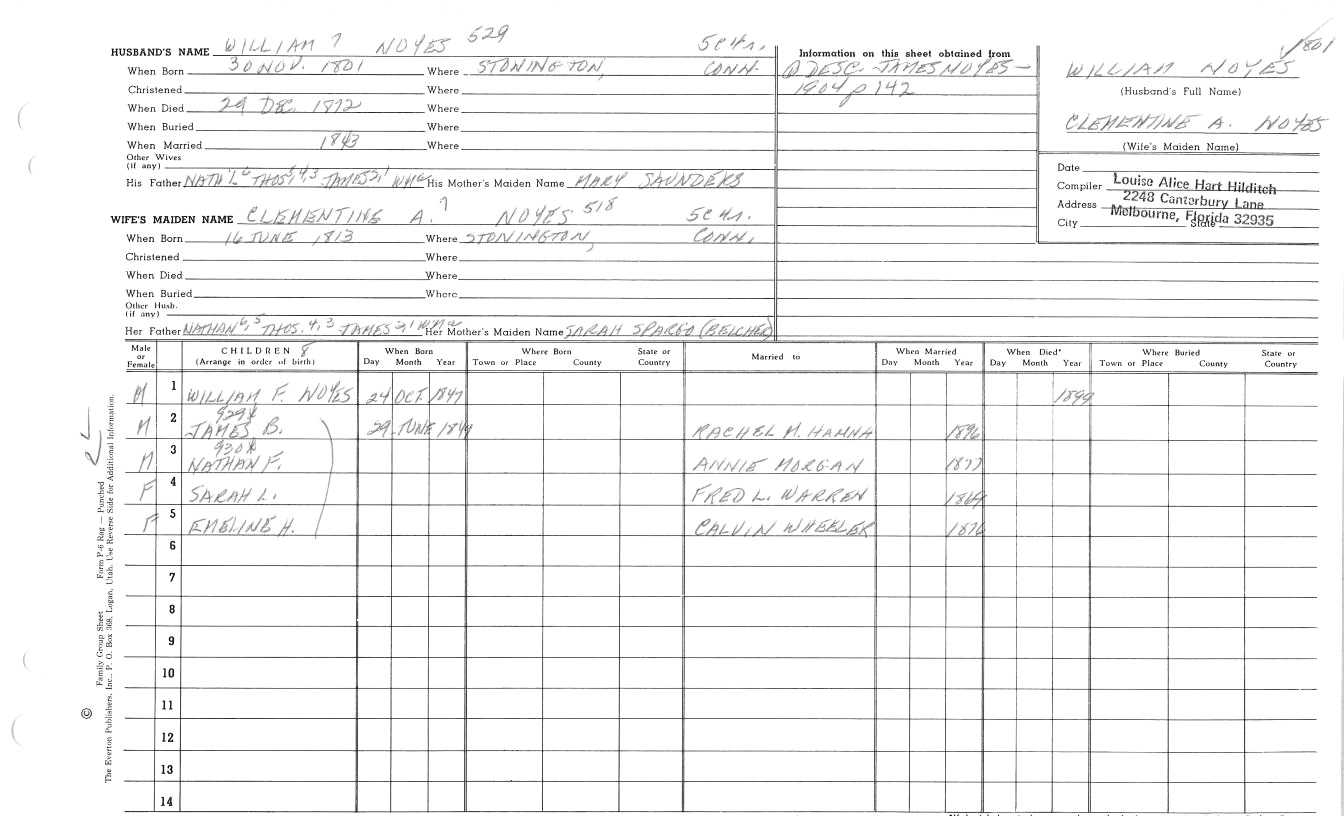 HUSBAND'S NAME WILLIAM 7 NOYES 529 5 CHn.
When Born 30 NOV. 1801 Where STONINGTON, CONN.
Christened Where
When Died 29 DEC. 1872 Where
When Buried Where
When Married 1843 Where
Other Wives
(if any)
His Father NATH'L 6 THOS. 4,3 JAMES 2,1 WM a His Mother's Maiden Name MARY SAUNDERS
WIFE'S MAIDEN NAME CLEMENTINE A. 7 NOYES 518 5 CHn.
When Born 16 JUNE 1813 Where STONINGTON, CONN.
Christened Where
When Died Where
When Buried Where
Other Husb.
(if any)
Her Father NATHAN 6,5 THOS. 4,3 JAMES 2,1 WM a Her Mother's Maiden Name SARAH (BELCHER)
Information on this sheet obtained from
DESC. JAMES NOYES -
1904 p 142
1801
WILLIAM NOYES
(Husband's Full Name)
CLEMENTINE A. NOYES
(Wife's Maiden Name)
Date
Compiler Louise Alice Hart Hilditch
Address 2248 Canterbury Lane
City Melbourne, Florida State 32935
Male or Female
CHILDREN 8
(Arrange in order of birth)
When Born
Day Month Year
Where Born
Town or Place County State or Country
Married to
When Married
Day Month Year
When Died*
Day Month Year
Where Buried
Town or Place County State or Country
M 1 WILLIAM F. NOYES 24 OCT. 1847 1899
929
M 2 JAMES B. 29 JUNE 1849 RACHEL M. HANNA 1896
930
M 3 NATHAN F. ANNIE MORGAN 1877
F 4 SARAH L. FRED L. WARREN 1869
F 5 EMELINE H. CALVIN WHEELER 1876
6
7
8
9
10
11
12
13
14
© Family Group Sheet Form P-6 Rag — Punched
The Everton Publishers, Inc., P. O. Box 368, Logan, Utah. Use Reverse Side for Additional Information.